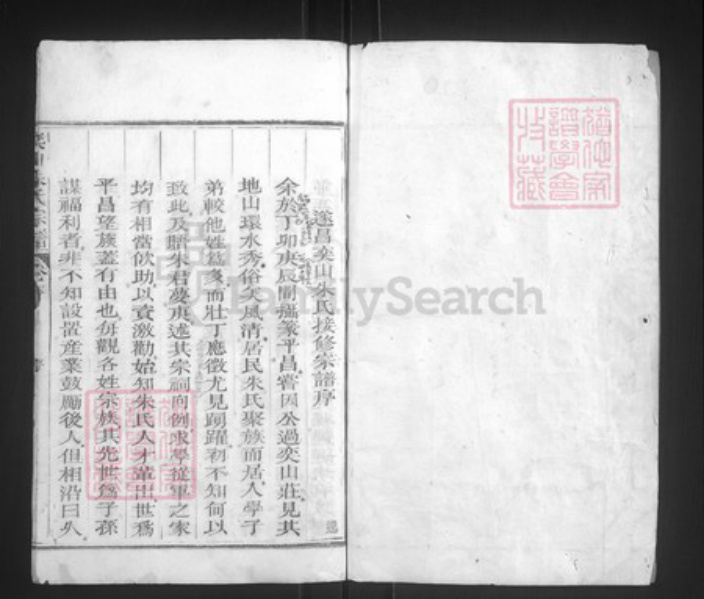 遂昌奕山朱氏接修宗譜序
余於丁卯庚辰間攝篆平昌嘗因公過奕山莊見其
地山環水秀俗美風清居民朱氏聚族而居人學子
弟較他姓為多而壯丁應徵尤見踴躍初不知何以
致此及晤朱君夢庚述其宗祠向例求學從軍之家
均有相當飲助以資激勸始知朱氏人才輩出世為
平昌望族蓋有由也每觀各姓宗族其先世為子孫
謀福利者非不知設置産業鼓勵後人但相沿日久
奕山朱氏宗譜
姓代家譜學會收藏
FamilySearch